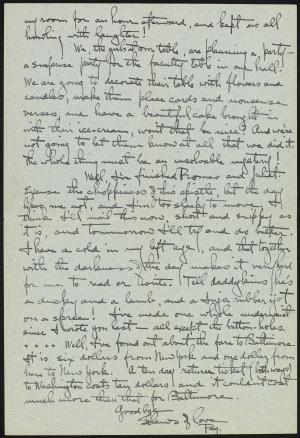 my room for an hour afterward, and kept us all
howling with laughter!
We, the girls at our table, are planning a party –
a surprise party for the faculty table in our hall!
We are going to decorate their table with flowers and
candles, make them place cards and nonsense
verses, and have a beautiful cake brought in
with their ice-cream, won't that be nice? And we're
not going to let them know at all that we did it.
The whole thing must be an unsolvable mystery!
Well, I've finished
Excuse the choppiness of this epistle, but the day
like me not, and I'm too sleepy to move. I
think I'll mail this now, short and snippy as
it is, and tommorrow I'll try and do better.
I have a cold in my left eye, and that together
with the darkness of the day makes it very hard
for me to read or write. Tell daddykins he's
a ducky and a lamb, and a
on a spree! I've made one whole underwaist
since I wrote you last – all except the button-holes.
++++ Well, I've found out about the fare to Baltimore.
It is six dollars from New York and one dollar from
here to New York. A ten day return ticket (both ways)
to Washington costs ten dollars and it couldn't cost
much more than that for Baltimore.
Good bye
of love